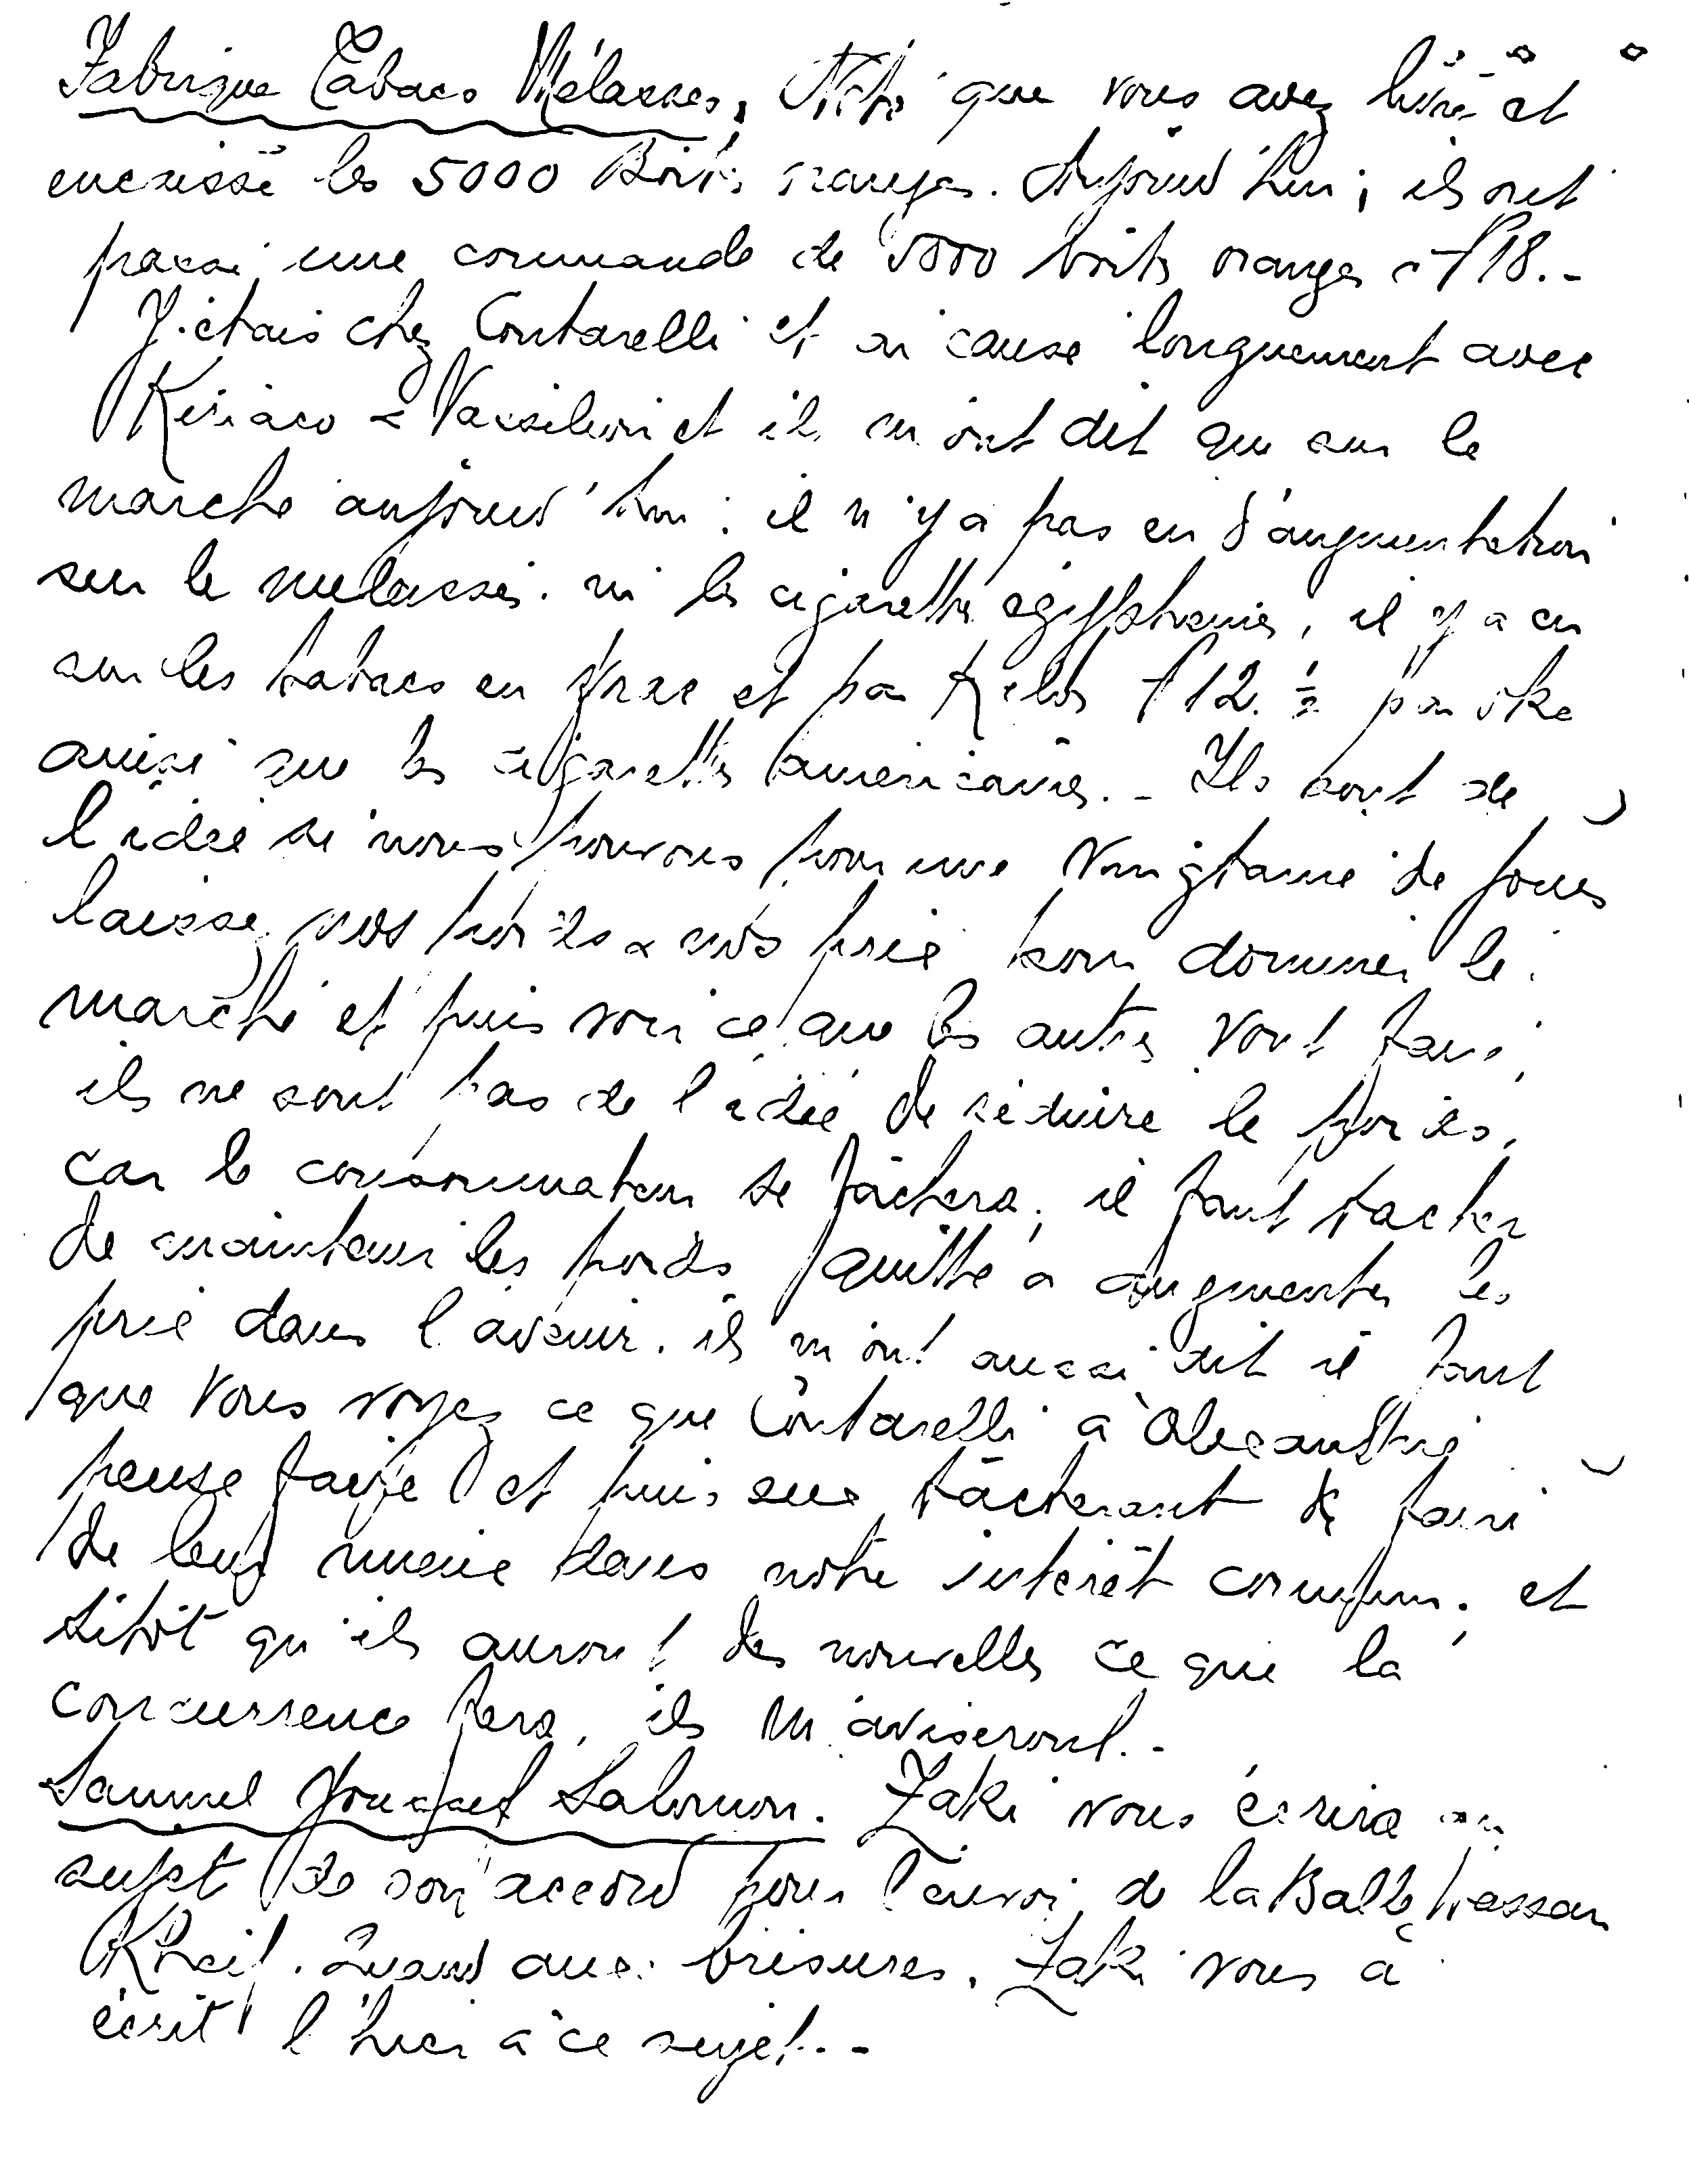 Fabrique Tabacs Mélasses, Noté que vous avez livré et
encaissé les 5000 Boits oranges. Aujourd'hui, ils ont
passé une commande de 5000 boits oranges à £18.-
J'étais chez Contarelli et ai causé longuement avec
Kiriaco & Vassiliou et ils m'ont dit que sur le
marché aujourd'hui: il n'y a pas eu d'augmentation
sur le mélasses. ni les cigarettes égyptiennes, il y a eu
sur les tabacs en vrac et par Kilos £12.½ par oke
ainsi que les cigarettes américaines.- Ils sont de
l'idée si nous pouvons pour une vingtaine de jours
laissez nos poids & nos prix pour dominer le
marché et puis voir ce que les autres vont faire,
ils ne sont pas de l'idée de réduire le poids,
car le consommateur se fâchera, il faut tacher
de maintenir les poids quitte à augmenter les
prix dans l'avenir. ils m'ont aussi dit il faut
que vous voyez ce que Contarelli à Alexandrie
pense faire et puis eux tâcheront de faire
de leur mieux dans notre intérêt commun. et
sitôt qu'ils auront des nouvelles ce que la
concurrence fera, ils m'aviseront.-
Samuel Youssef Salomon. Zaki vous écrira au
sujet de son accord pour l'envoi de la Balle Hassan
Kheif. Quand aux brisures. Zaki vous a
écrit l'hier à ce sujet.-